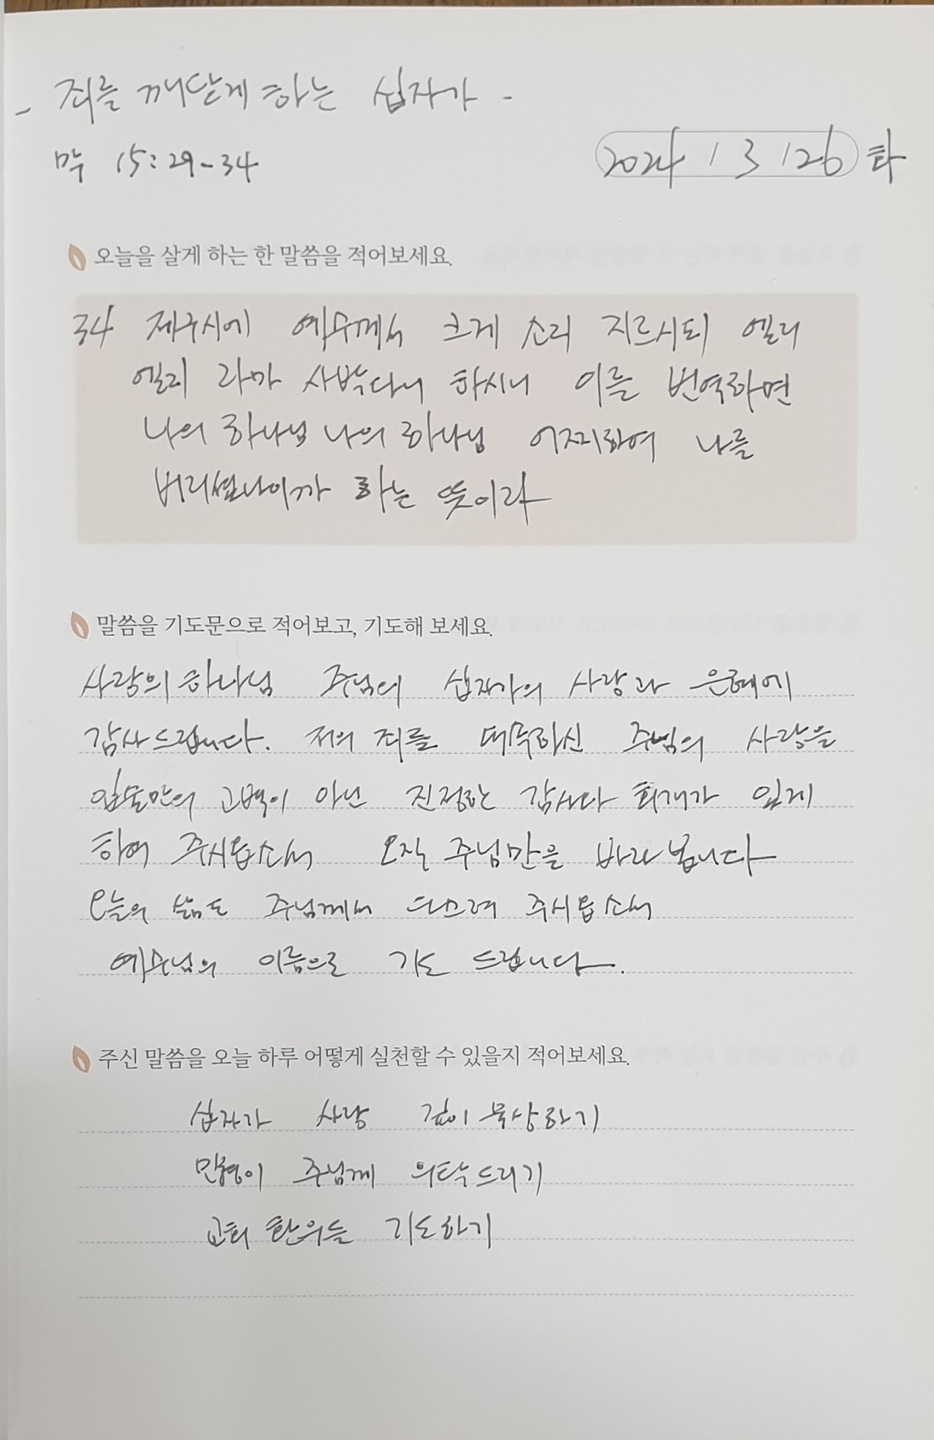 - 죄를 깨닫게 하는 십자가 -
막 15:29-34
2024 / 3 / 26 화
오늘을 살게 하는 한 말씀을 적어보세요.
34 제구시에 예수께서 크게 소리 지르시되 엘리
엘리 라마 사박다니 하시니 이를 번역하면
나의 하나님 나의 하나님 어찌하여 나를
버리셨나이까 하는 뜻이라
말씀을 기도문으로 적어보고, 기도해 보세요.
사랑의 하나님 주님의 십자가의 사랑과 은혜에
감사드립니다. 저의 죄를 대속하신 주님의 사랑을
입술만의 고백이 아닌 진정한 감사와 회개가 있게
하여 주시옵소서 오직 주님만을 바라봅니다
오늘의 삶도 주님께서 다스려 주시옵소서
예수님의 이름으로 기도 드립니다.
주신 말씀을 오늘 하루 어떻게 실천할 수 있을지 적어보세요.
십자가 사랑 깊이 묵상하기
민형이 주님께 의탁드리기
교회 환우들 기도하기